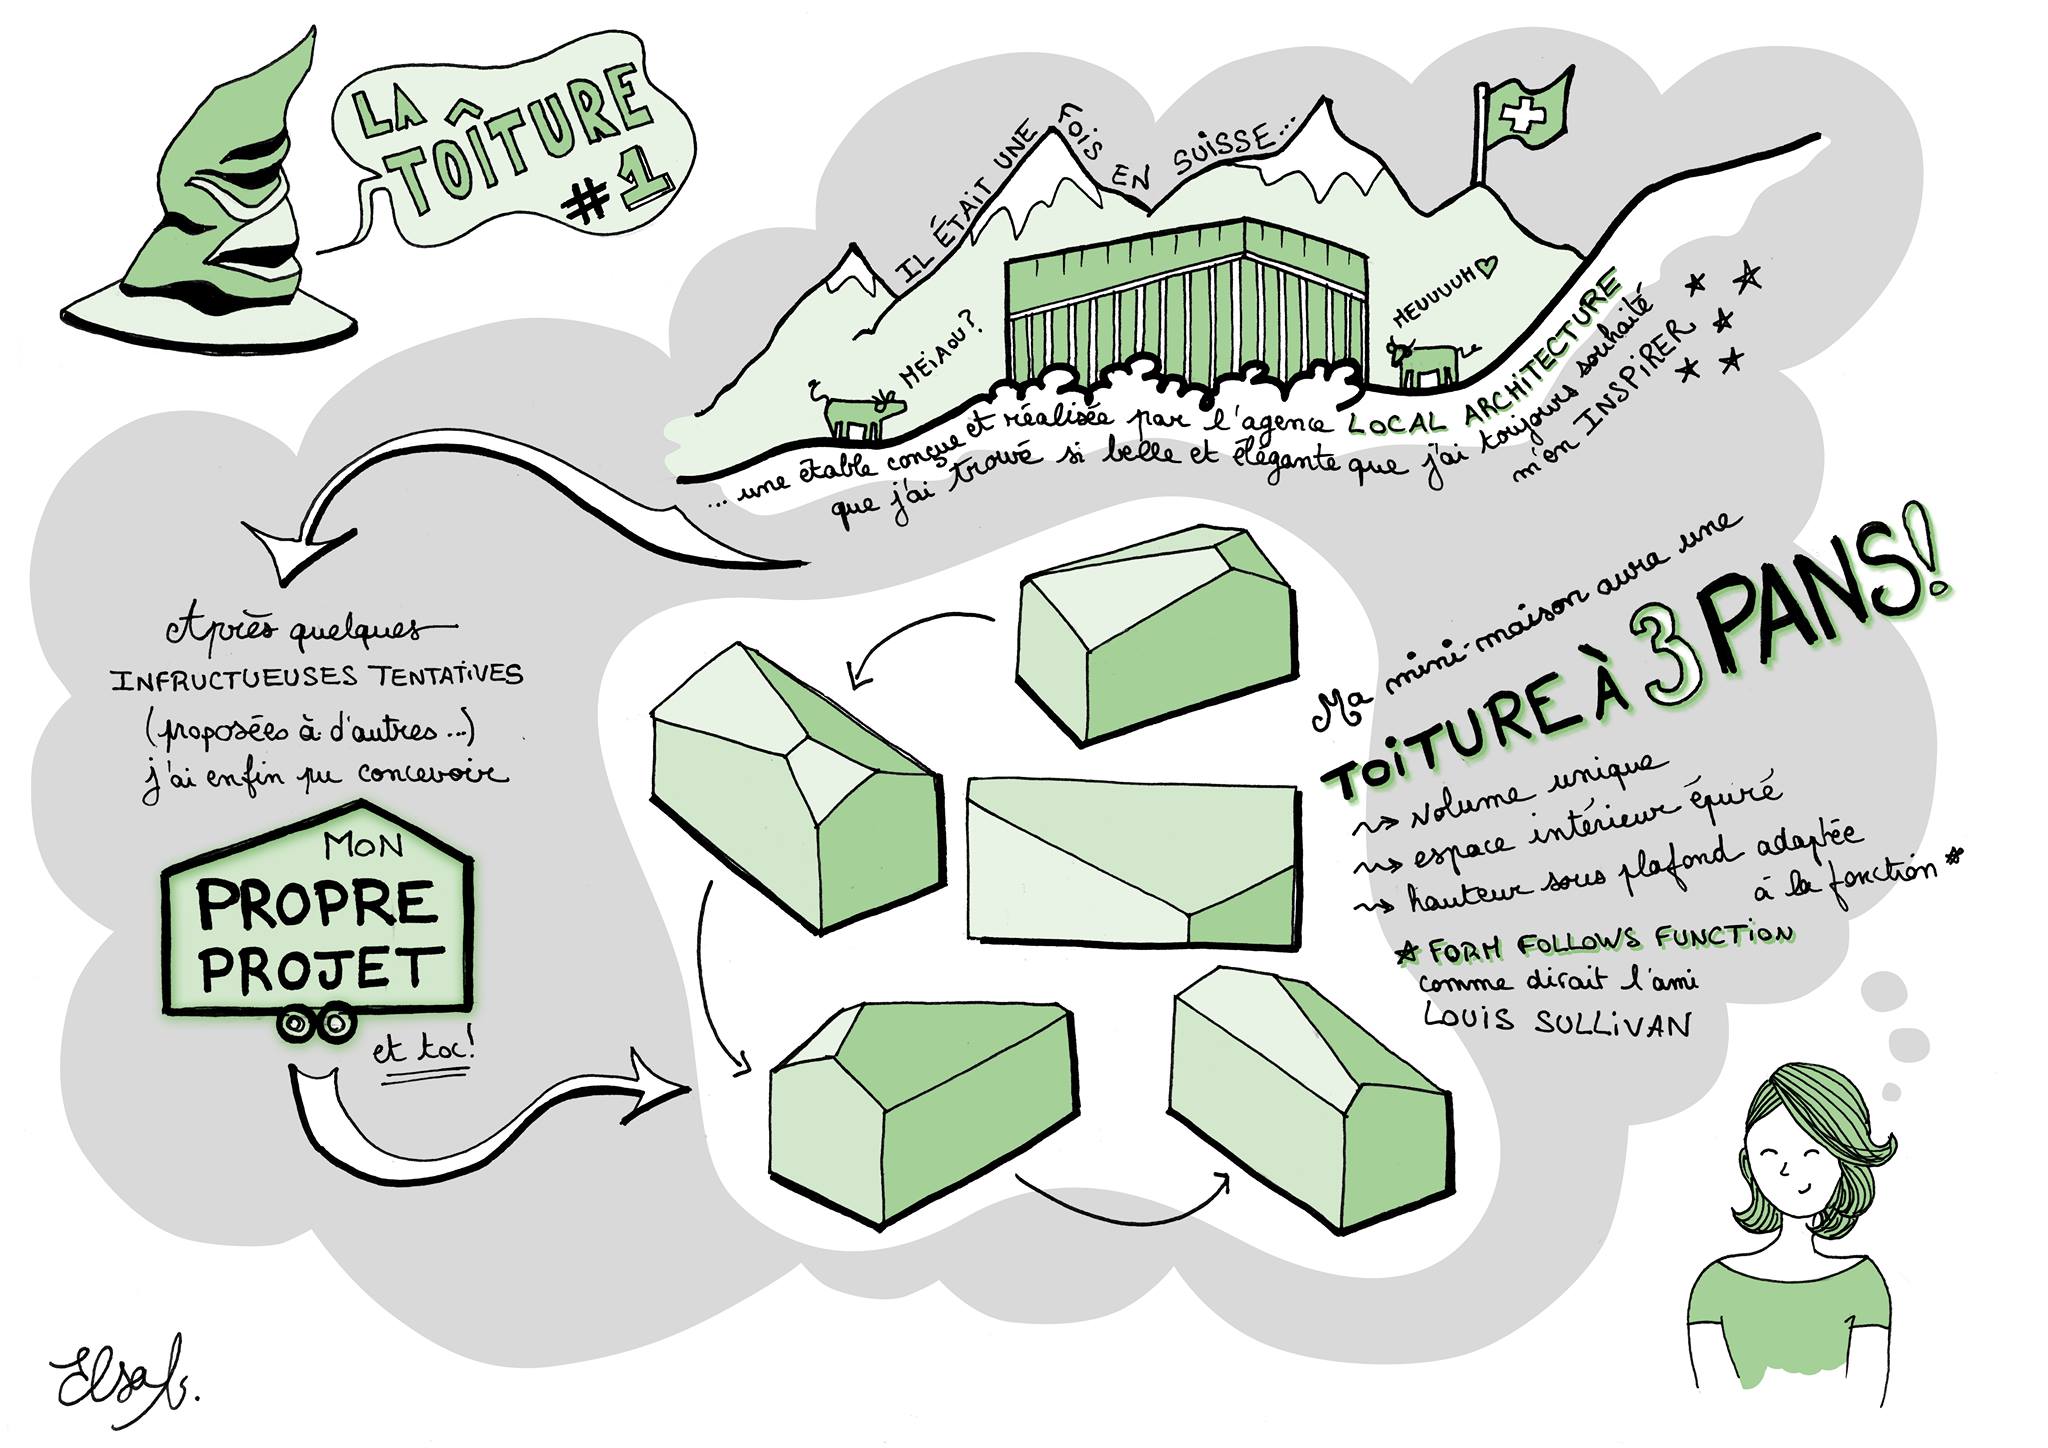 LA
TOÎTURE
#1
IL ÉTAIT UNE FOIS EN SUISSE...
MEIAOU?
MEUUUUH
... une étable conçue et réalisée par l'agence LOCAL ARCHITECTURE
que j'ai trouvé si belle et élégante que j'ai toujours souhaité
m'en INSPIRER
Après quelques
INFRUCTUEUSES TENTATIVES
(proposées à d'autres...)
j'ai enfin pu concevoir
MON
PROPRE
PROJET
et toc!
Ma mini-maison aura une
TOITURE À 3 PANS!
volume unique
espace intérieur épuré
hauteur sous plafond adaptée
à la fonction*
* FORM FOLLOWS FUNCTION
comme dirait l'ami
LOUIS SULLIVAN